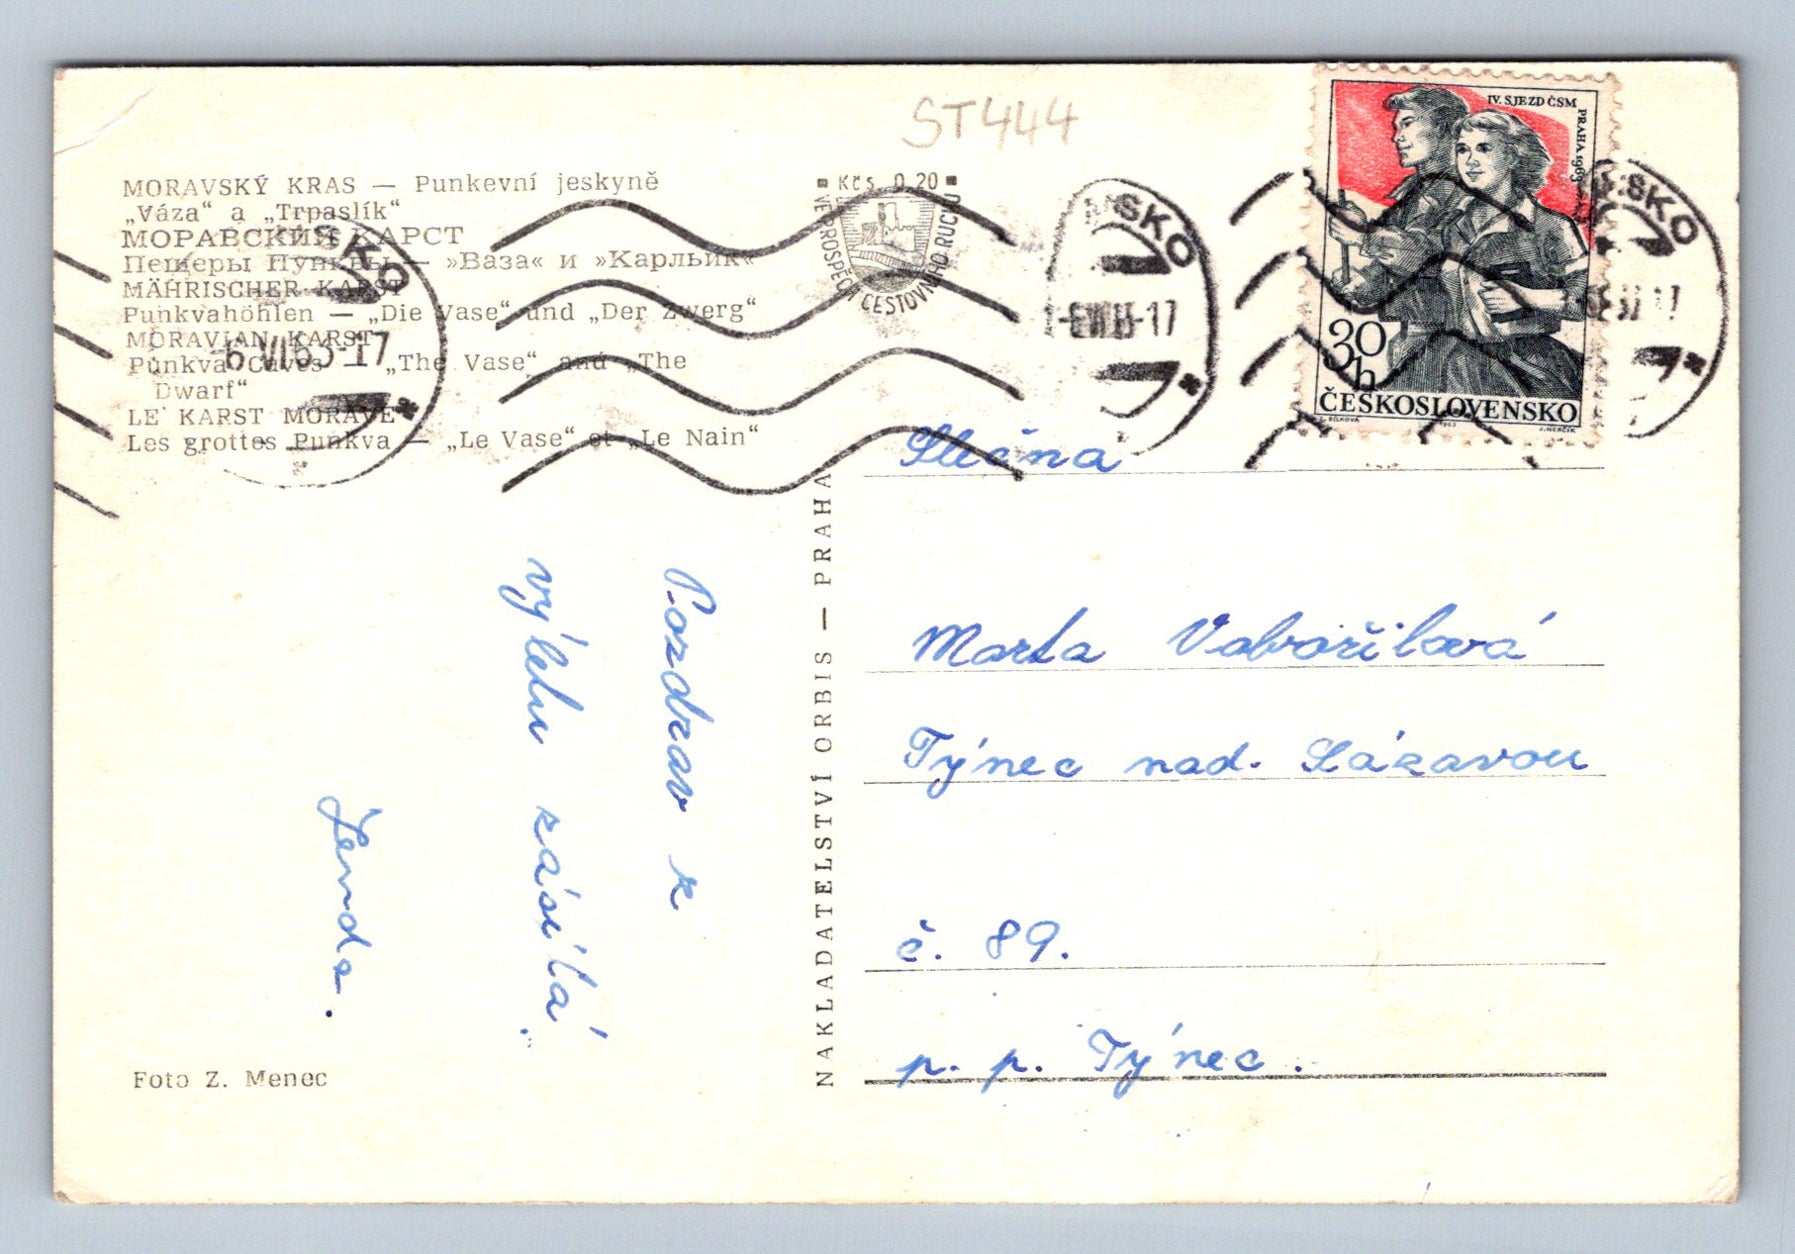 ST444
MORAVSKÝ KRAS — Punkevní jeskyně
„Váza“ a „Trpaslík“
МОРАВСКИЙ КАРСТ
Пещеры Пунквы — »Ваза« и »Карльик«
MÄHRISCHER KARST
Punkvahöhlen — „Die Vase“ und „Der Zwerg“
MORAVIAN KARST
Punkva Caves — „The Vase“ and „The
Dwarf“
LE KARST MORAVE
Les grottes Punkva — „Le Vase“ et „Le Nain“
Kčs 0,20
VE PROSPĚCH CESTOVNÍHO RUCHU
-6.VI.63-17
SKO
SKO
IV. SJEZD ČSM
PRAHA 1963
30
h
ČESKOSLOVENSKO
1963
J. HERČÍK
Slečna
Marta Vavořilová
Týnec nad. Sázavou
č. 89.
p. p. Týnec.
Pozdrav z
výletu zásílá
Jenda.
NAKLADATELSTVÍ ORBIS — PRAHA
Foto Z. Menec